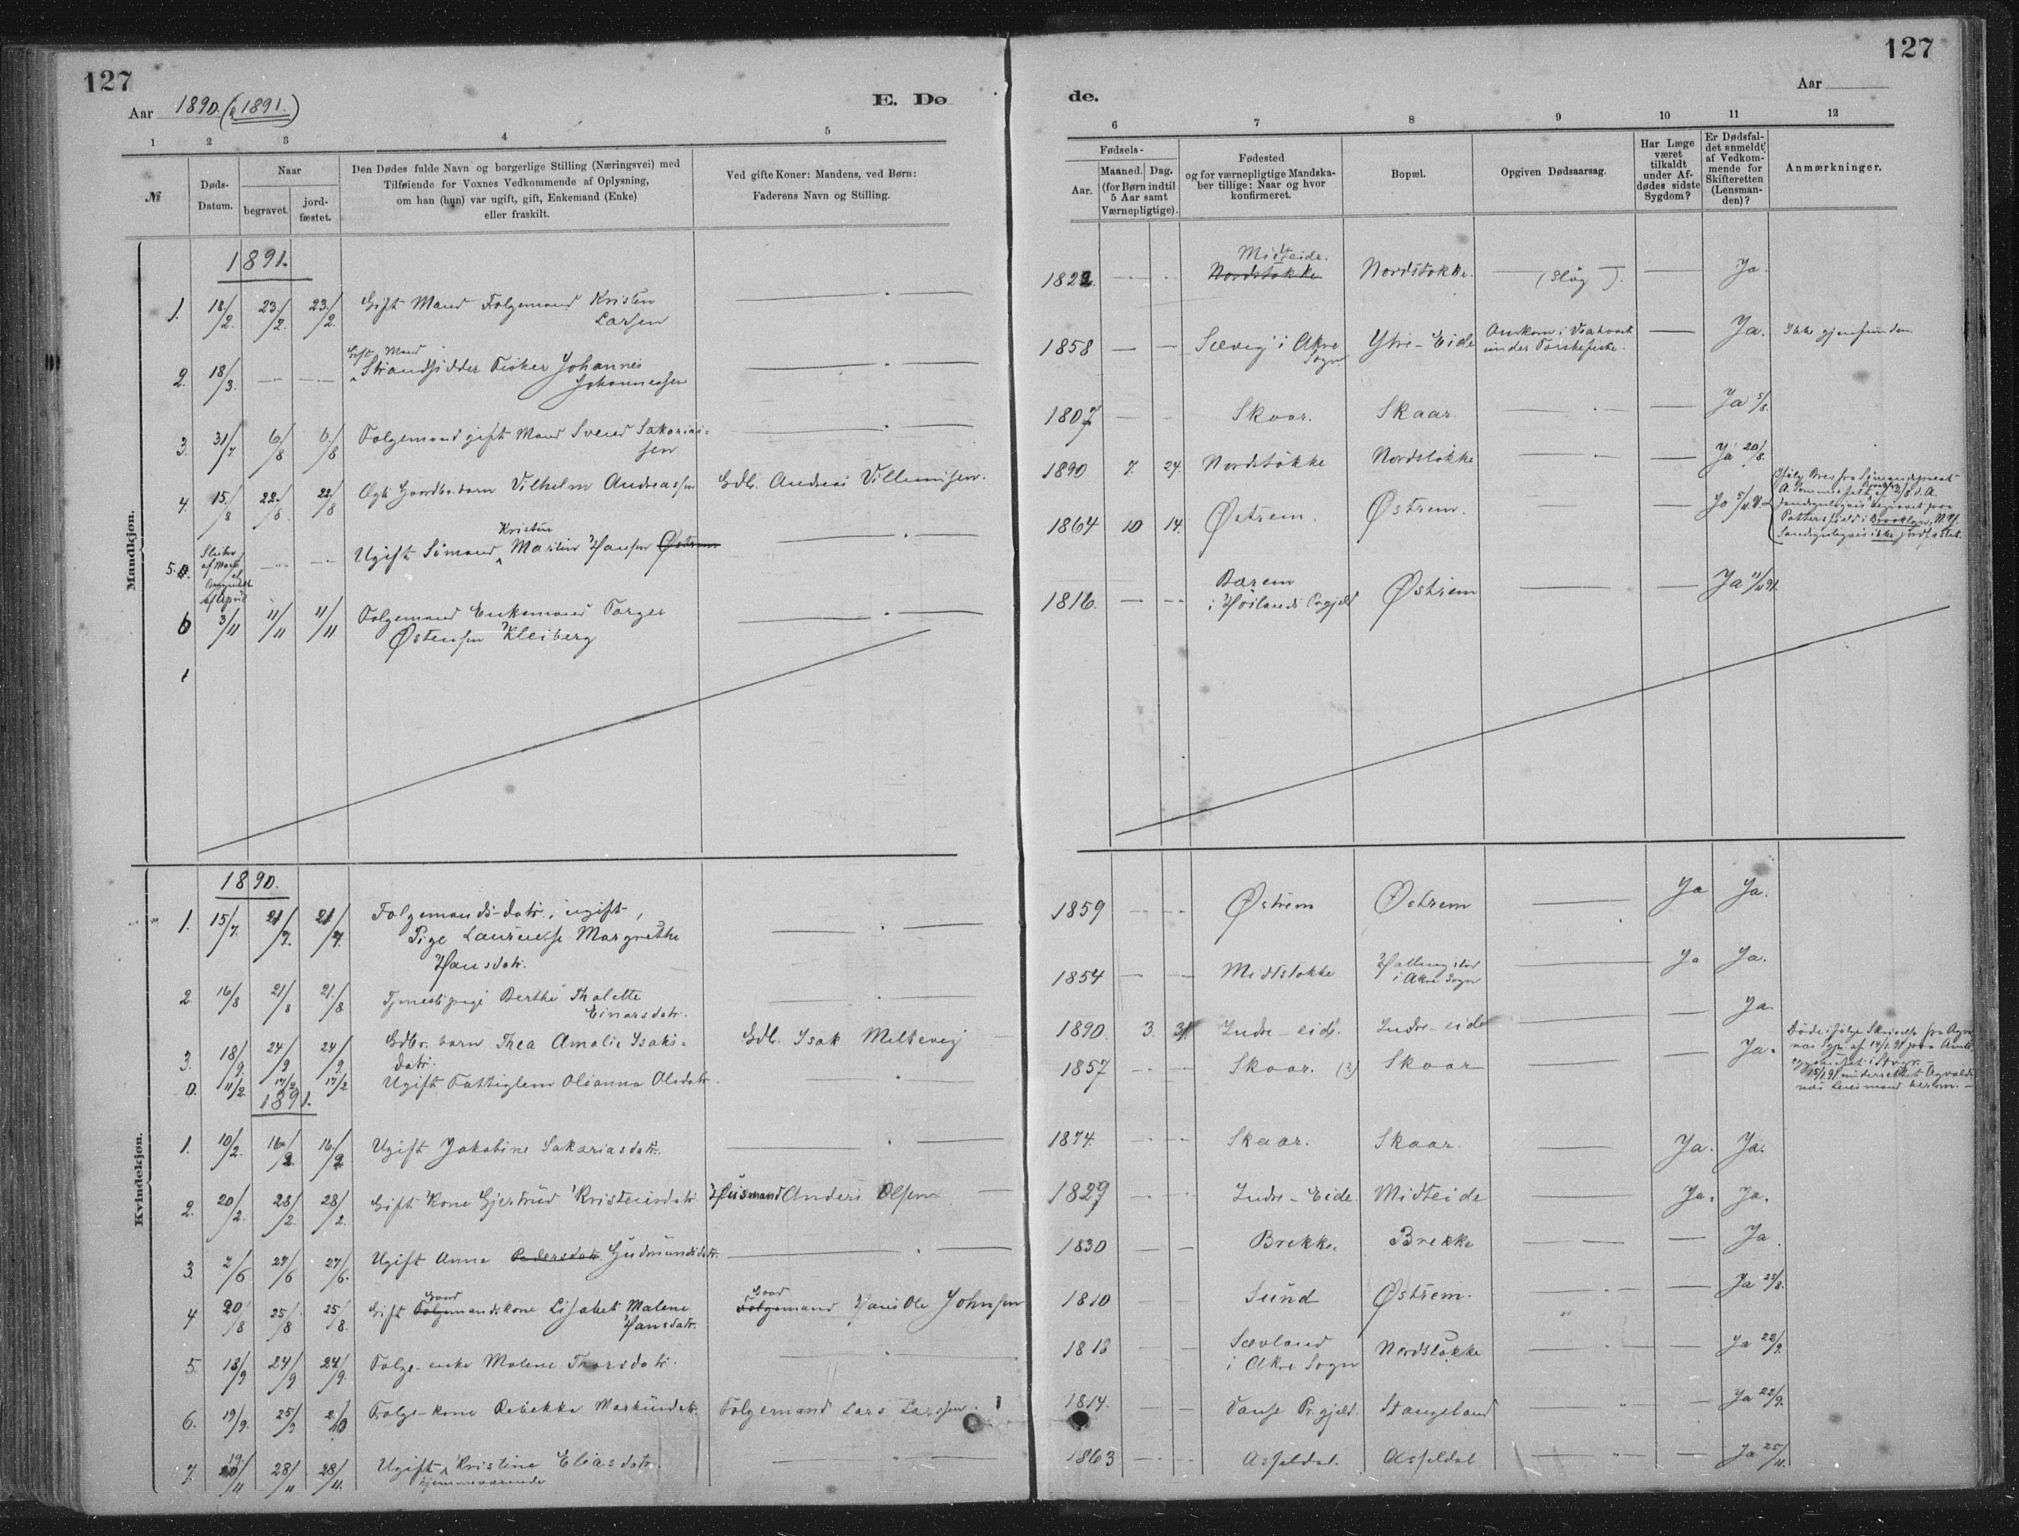 127
127
Aar 1890. (& 1891.)
E. Dø
de.
Aar
1 2 3 4 5
6 7 8 9 10 11 12
№
Døds-
Datum.
Naar
begravet.
jord-
fæstet.
Den Dødes fulde Navn og borgerlige Stilling (Næringsvei) med
Tilføiende for Voxnes Vedkommende af Oplysning,
om han (hun) var ugift, gift, Enkemand (Enke)
eller fraskilt.
Ved gifte Koner: Mandens, ved Børn:
Faderens Navn og Stilling.
Fødsels-
Aar.
Maaned. Dag.
(for Børn indtil
5 Aar samt
Værnepligtige).
Fødested
og for værnepligtige Mandska-
ber tillige: Naar og hvor
konfirmeret.
Bopæl.
Opgiven Dødsaarsag.
Har Læge
været
tilkaldt
under Af-
dødes sidste
Sygdom?
Er Dødsfal-
det anmeldt
af Vedkom-
mende for
Skifteretten
(Lensman-
den)?
Anmærkninger.
Mandkjøn.
1891.
1. 18/2. 23/2. 23/2. Gift Mand Folgemand Kristen
Larsen
1822. Midteide.
Nordstokke Nordstokke. (Slag) Ja.
2. 18/3. Gift Mand
Strandsidder Fisker Johannes
Johannessen
1858 Sævig i Akre
Sogn Ytre-Eide Omkom i
under Torskefiske. Ja. Ikke gjenfunden
3. 31/7. 6/8 6/8 Folgemand gift Mand Svend Sakarias-
sen
1807 Skaar. Skaar. Ja 5/8.
4. 15/8 22/8 22/8 Ægte Gaardbr. barn Vilhelm Andreassen Gdb. Andreas Villumsen.
1890 7. 24. Nordstokke Nordstokke Ja 20/8.
5. Slutten
af Marts
el.
Begyndelsen
af April Ugift Sømand Kristen Martin Hansen Østrem
1864 10 14. Østrem. Østrem.
Brooklyn, N.Y.
6 3/11 11/11 11/11 Folgemand Enkemand Torger
Østensen Kleiberg
1816. Bærem
i Høilands Prgjæld Østrem Ja 11/11 91.
Kvindekjøn.
1890.
1. 15/7. 21/7. 21/7 Folgemands-datr., ugift,
Pige Laurentse Margrethe
Hansdatr.
1859 Østrem Østrem Ja Ja.
2. 16/8 21/8 21/8 Tjenestepige Berthe Tholette
Einarsdatr.
1854 Midtstokke
i Akre Sogn Ja Ja.
3. 18/9. 24/9 24/9. Gdbr. barn Thea Amalie Isaks-
datr. Gdb. Isak Meltevig
1890. 3. 31 Indre-eide. Indre-eide Ja.
0. 11/2. 17/2 17/2 Ugift Fattiglem Olianna Olsdatr.
1857 Skaar. (?) Skaar Ja.
1891.
1. 10/2. 16/2 16/2 Ugift Jakobine Sakariasdatr.
1874. Skaar. Skaar. Ja. Ja.
2. 20/2. 28/2. 28/2. Gift Kone Gjertrud Kristensdatr Husmand Anders Olsen
1829 Indre-Eide. Midteide Ja. Ja.
3. 2/6 27/6 27/6. Ugift Anna Pedersdatr Gudmundsdatr.
1830 Brekke. Brekke Ja.
4 20/8 25/8 25/8. Gift Folgemandskone Lisabet Malene
Hansdatr. Folgemand Hans Ole Johnsen
1810 Sund Østrem. Ja 25/8.
5. 18/9 24/9 24/9. Folge-enke Malene Thorsdatr.
1818 Sævland
i Akre Sogn Nordstokke Ja 22/9.
6. 19/9. 25/9 2/10 Folge-kone Rebekka Markusdatr. Folgemand Lars Larssen.
1814. Vanse Prgjeld. Stangeland Ja 22/9.
7. 19/11 28/11 28/11. Ugift Kristine Eliasdatr.
hjemmeværende
1863 Asseldal. Asseldal Ja 25/11.